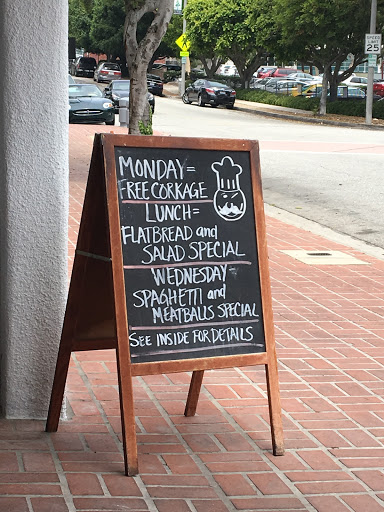 MONDAY=
FREE CORKAGE
LUNCH=
FLATBREAD and
SALAD SPECIAL
WEDNESDAY
SPAGHETTI and
MEATBALLS SPECIAL
SEE INSIDE FOR DETAILS
SPEED
LIMIT
25